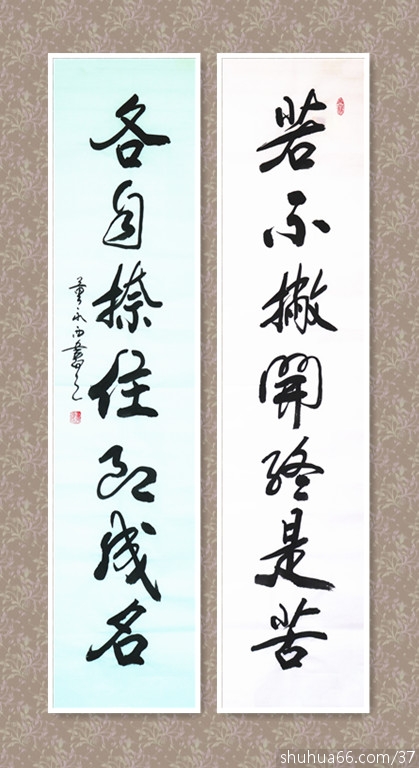 若不撇開終是苦
各自捺住即成名
shuhua66.com/37